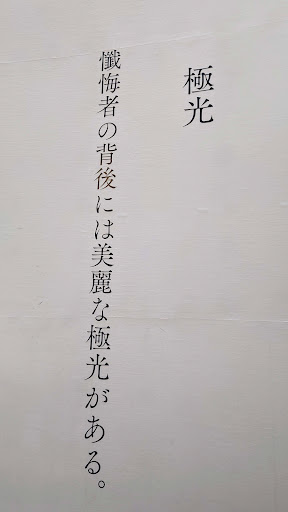 極光
懺悔者の背後には美麗な極光がある。